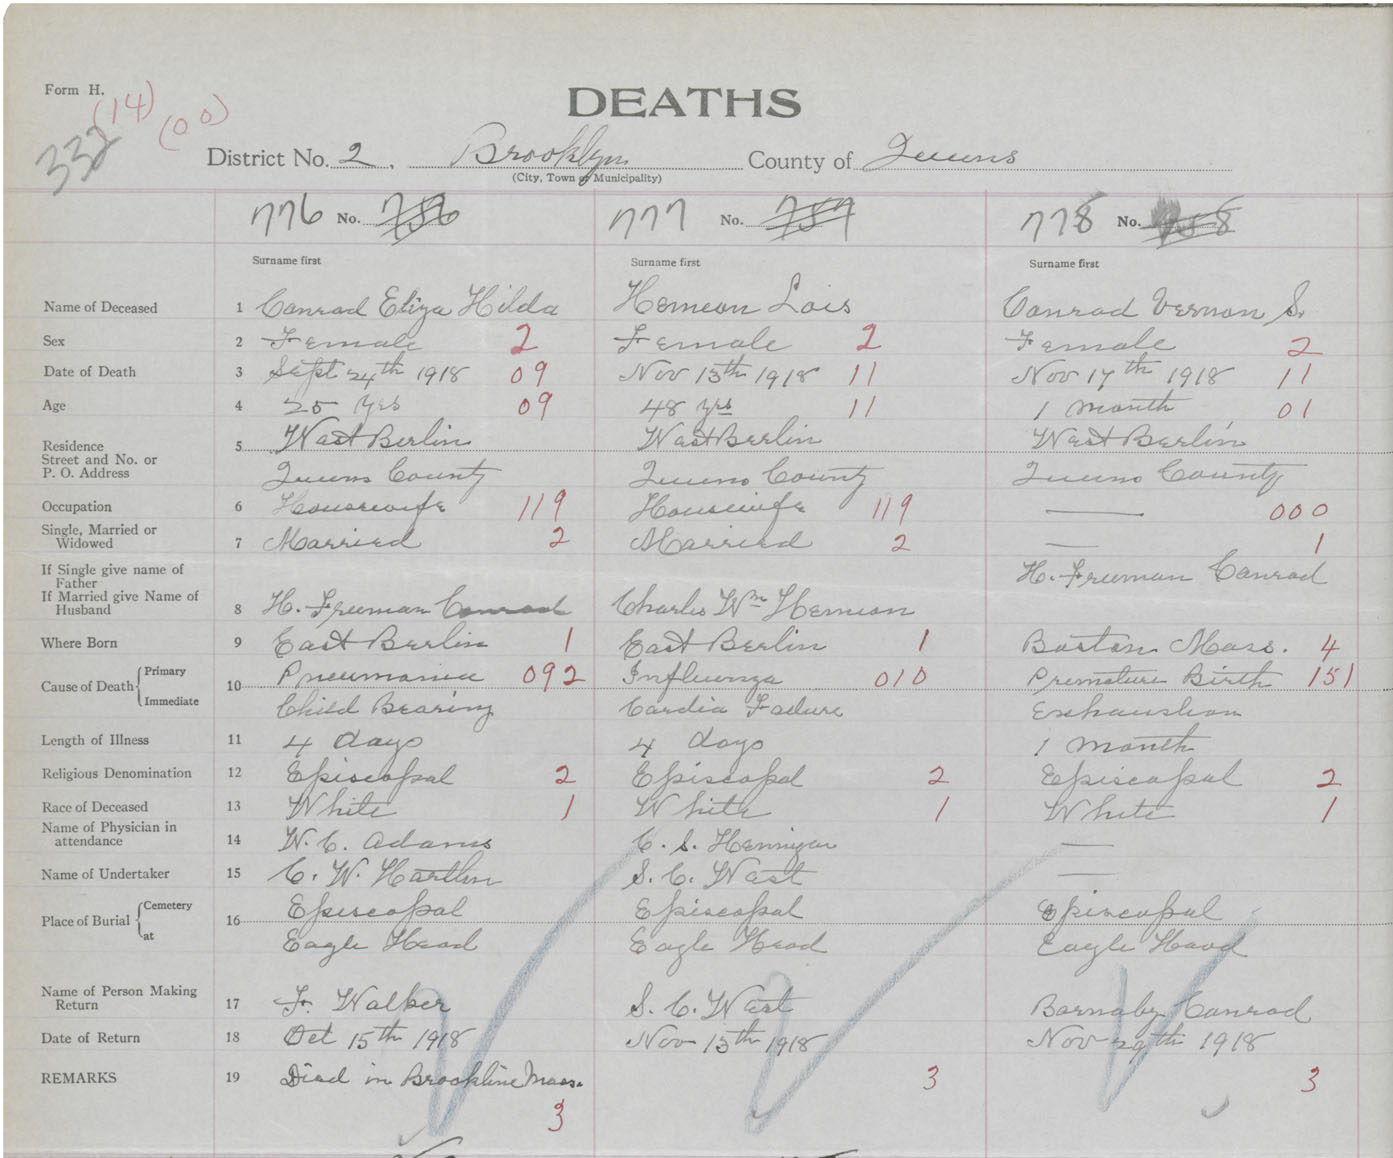 Form H.
(14) (00)
332
DEATHS
District No. 2. Brooklyn County of Queens
(City, Town or Municipality)
776 No. 756 777 No. 757 778 No. 758
Surname first Surname first Surname first
Name of Deceased 1 Conrad Eliza Hilda Hemeon Lois Conrad Vernon S.
Sex 2 Female 2 Female 2 Female 2
Date of Death 3 Sept 24th 1918 09 Nov 13th 1918 11 Nov 17th 1918 11
Age 4 25 yrs 09 48 yrs 11 1 month 01
Residence 5 West Berlin West Berlin West Berlin
Street and No. or
P. O. Address Queens County Queens County Queens County
Occupation 6 Housewife 119 Housewife 119 — 000
Single, Married or
Widowed 7 Married 2 Married 2 — 1
If Single give name of
Father H. Freeman Conrad
If Married give Name of
Husband 8 H. Freeman Conrad Charles Wm Hemeon
Where Born 9 East Berlin 1 East Berlin 1 Boston Mass. 4
Cause of Death { Primary 10 Pneumonia 092 Influenza 010 Premature Birth 151
Immediate Child Bearing Cardia Failure Exhaustion
Length of Illness 11 4 days 4 days 1 month
Religious Denomination 12 Episcopal 2 Episcopal 2 Episcopal 2
Race of Deceased 13 White 1 White 1 White 1
Name of Physician in
attendance 14 W. C. Adams C. S. Hennigar —
Name of Undertaker 15 C. W. Hartlin S. C. West —
Place of Burial { Cemetery 16 Episcopal Episcopal Episcopal
at Eagle Head Eagle Head Eagle Head
Name of Person Making
Return 17 Walker S. C. West Barnaby Conrad
Date of Return 18 Oct 15th 1918 Nov 15th 1918 Nov 29th 1918
REMARKS 19 Died in Brookline Mass. 3 3
3